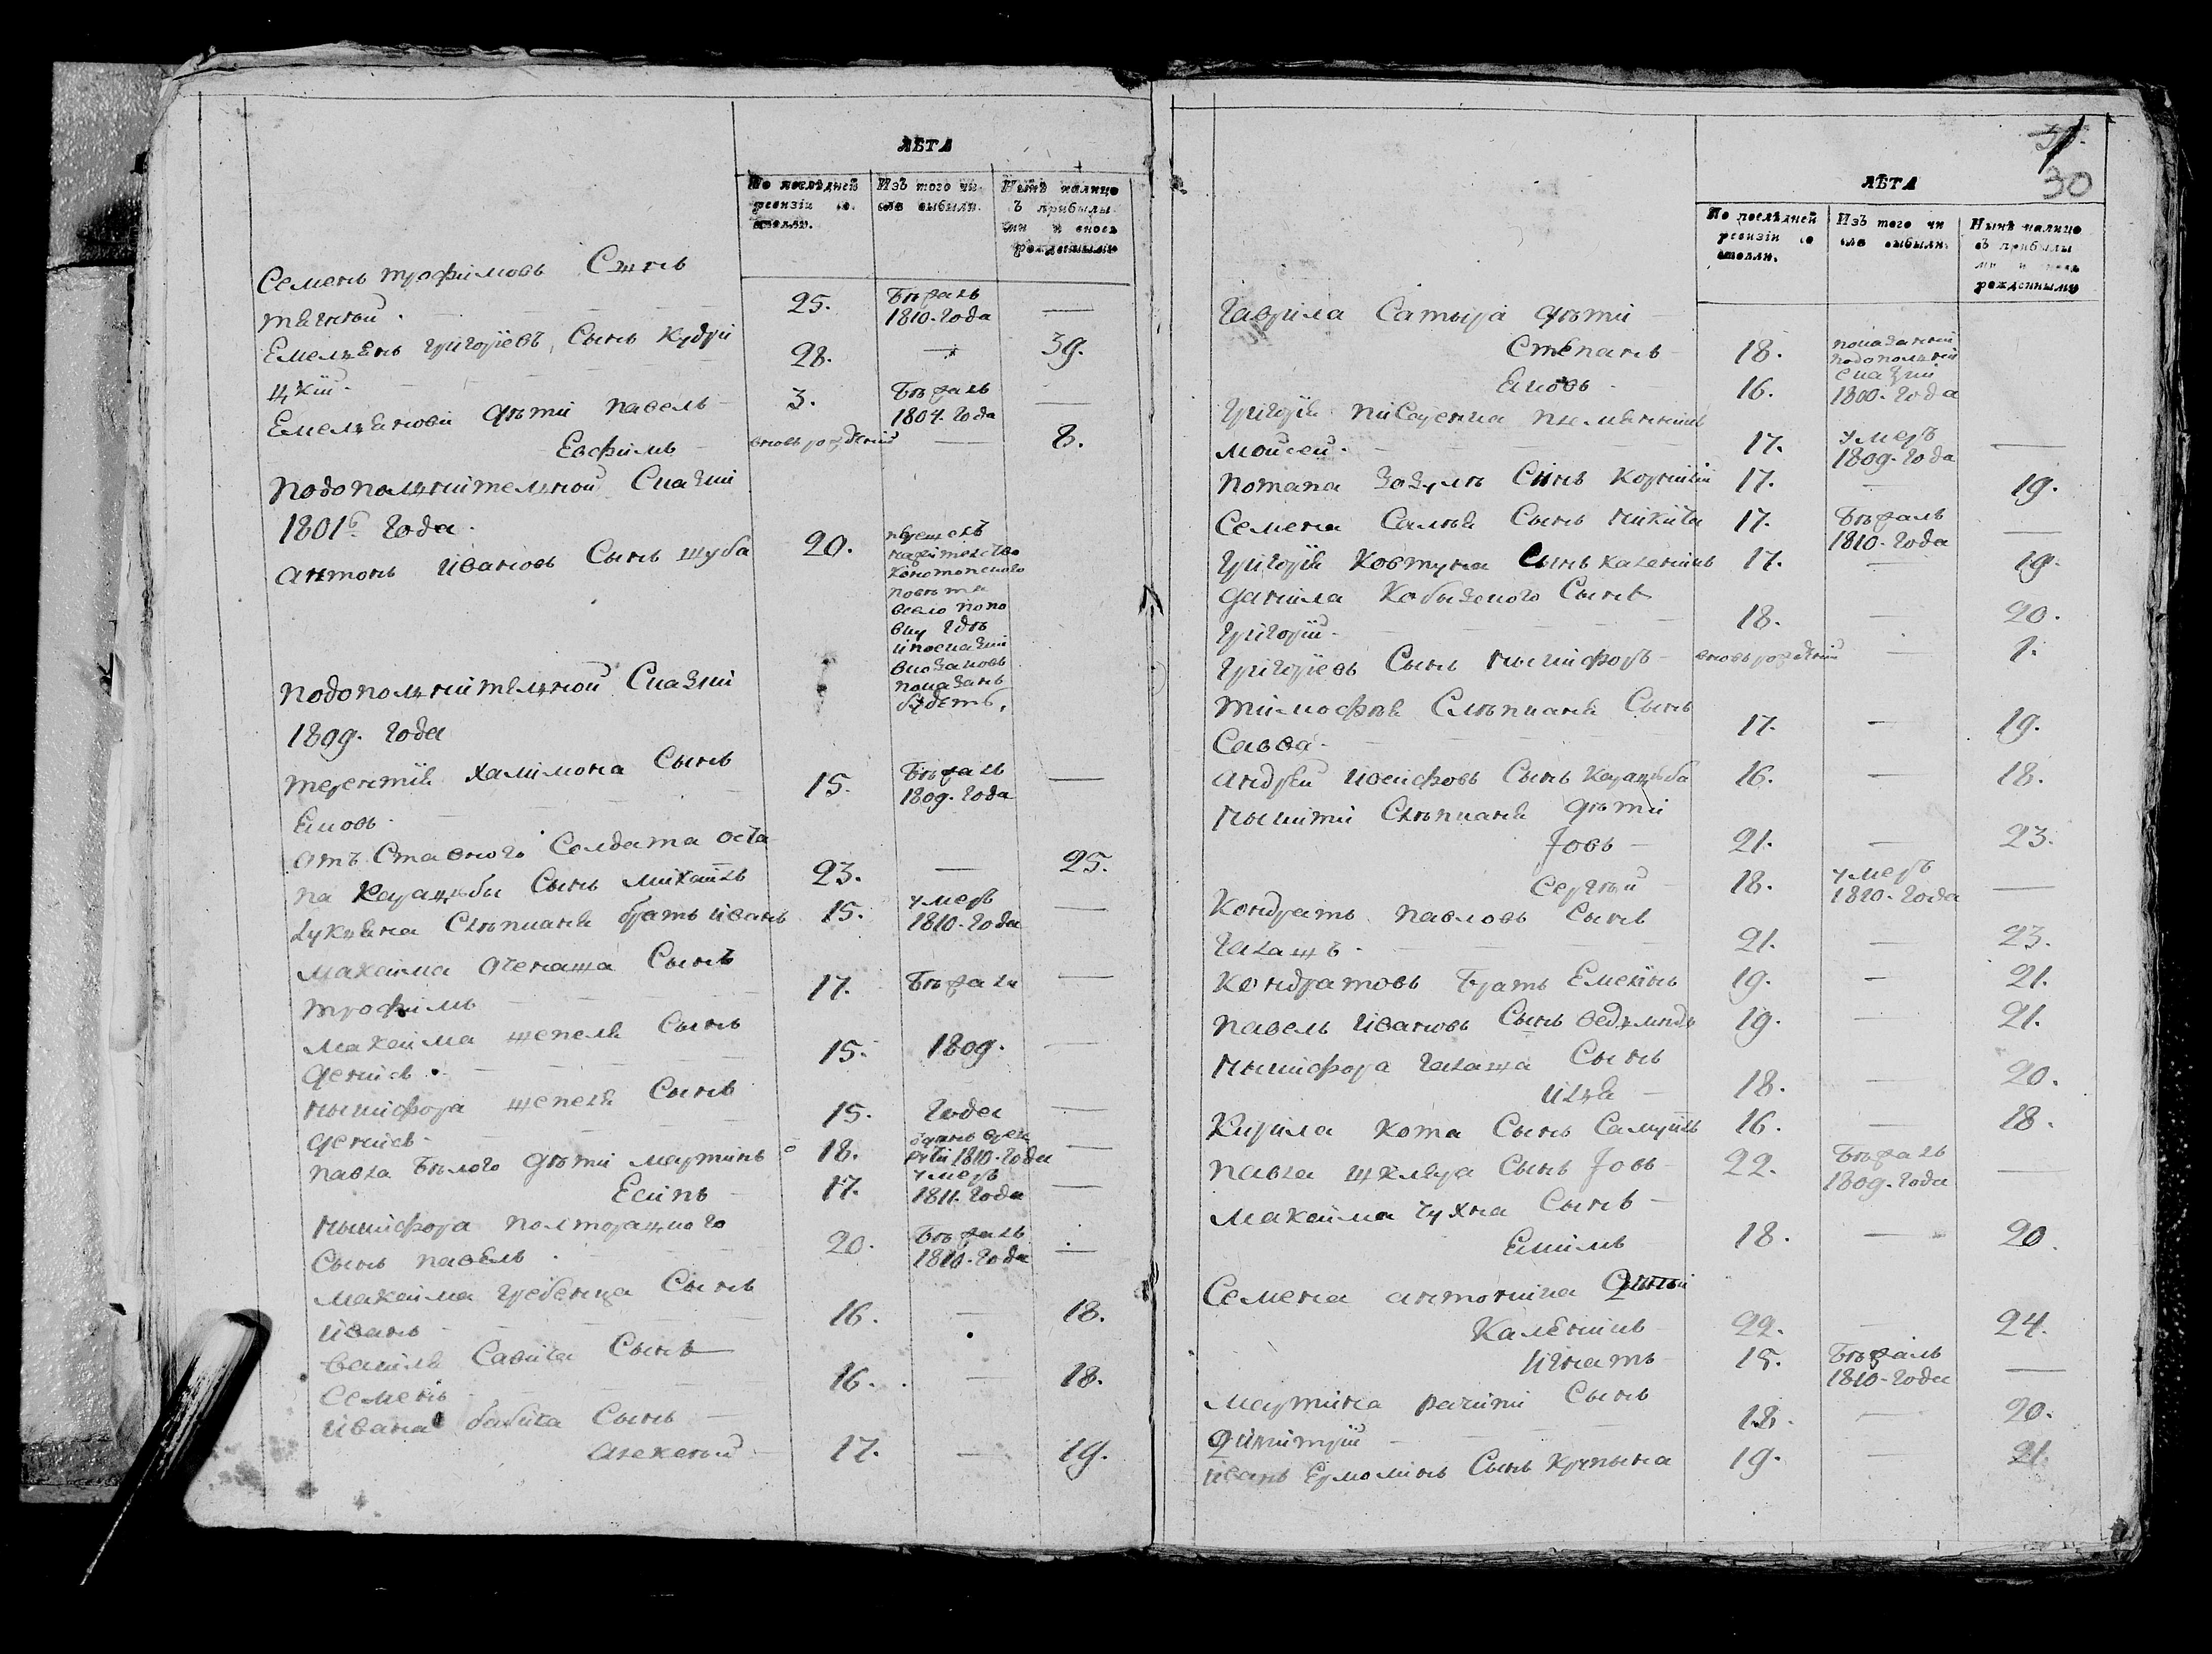 ЛѢТА
По послѣдней ревизіи со стояли. Изъ того чи сла выбыли. Нынѣ налицо съ прибылы ми и вновь рожденными
Семенъ трофимовъ Сынъ
25. Бѣжалъ 1810. Года —
Емельянъ григорїевъ Сынъ Кудри
цкїй. 28. — 39.
Емельяновы дѣти павелъ 3. Бѣжалъ 1804. Года —
Евфимъ вновь рожденый — 8.
подополнительной Сказки
1801г. Года.
антонъ ивановъ Сынъ шуба 20. перешолъ нажительство конотопского повѣта всело попо вку гдѣ
показанъ будетъ,
подополнительной Сказки
1809. Года
терентїя халимона Сынъ
Яковъ. 15. Бѣжалъ 1809. Года —
отъ Ставного Солдата оста
па Карацюбы Сынъ михайлъ 23. — 25.
лукьяна Слѣпканя братъ иванъ 15. умеръ 1810. Года —
максима Сынъ
трофимъ 17. Бѣжали —
максима шепеля Сынъ
денисъ. 15. 1809. —
никифора шепеля Сынъ
денисъ. 15. Года —
павла Бѣлого дѣти мартинъ 18. 1810. Года —
Есипъ 17. умеръ 1811. Года —
никифора полторацкого
Сынъ павелъ. 20. Бѣжалъ 1810. Года —
максима гребенца Сынъ
иванъ 16. — 18.
василя Савича Сынъ
Семенъ 16. — 18.
ивана бабича Сынъ
алексей 17. — 19.
30
ЛѢТА
По послѣдней ревизіи со стояли. Изъ того чи сла выбыли. Нынѣ налицо съ прибылы ми и вновь рожденными
гаврила Сатыра дѣти
Степанъ 18. показаний подополной сказки
Яковъ 16. 1800. Года
григорїя писаренка племянникъ
мойсей. 17. умеръ 1809. Года —
потапа зозулѣ Сынъ корнїй 17. — 19.
Семена Сынъ никита 17. Бѣжалъ 1810. Года —
григорїя Ковтуна Сынъ каленикъ 17. — 19.
данила Кобызского Сынъ
григорїй. 18. — 20.
григорїевъ Сынъ никифоръ вновь рожденый — 1.
тимофѣя Слѣпканя Сынъ
Савва. 17. — 19.
андрей иосифовъ Сынъ Карацюба 16. — 18.
никити Слѣпканя дѣти
Іовъ 21. — 23.
Сергѣй 18. умеръ 1810. Года —
Кондратъ павловъ Сынъ
галащъ. 21. — 23.
Кондратовъ братъ Емелянъ 19. — 21.
павелъ ивановъ Сынъ 19. — 21.
никифора галаща Сынъ
илья 18. — 20.
Кирила кота Сынъ Самуйлъ 16. — 18.
павла шкляра Сынъ Іовъ 22. Бѣжалъ 1809. Года —
максима чухна Сынъ
Якимъ 18. — 20.
Семена антонина дѣти
Каленикъ 22. — 24.
игнатъ 15. Бѣжалъ 1810. Года —
мартина Сынъ
димитрїй 18. — 20.
иванъ Ермолинъ Сынъ 19. — 21.